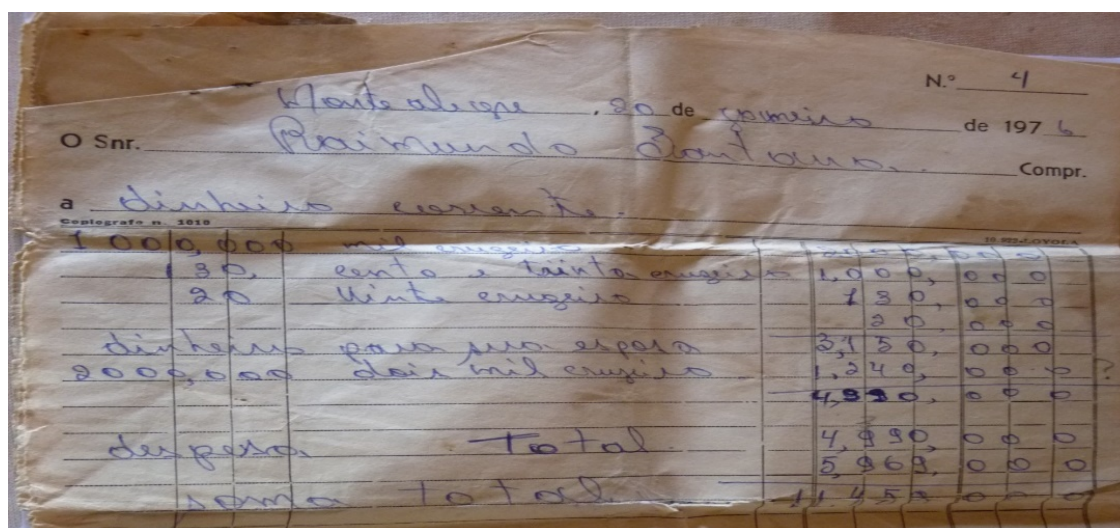 N.º 4
Monte alegre, 20 de janeiro de 1976
O Snr. Raimundo Santana.
Compr.
a dinheiro corrente.
Copiografo n. 1010 LOYOLA
1000,000 mil cruzeiro 2000,000
130, cento e trinta cruzeiro 1,000,000
20 vinte cruzeiro 130,000
20,000
dinheiro para sua espoza 3,150,000
2000,000 dois mil cruzeiro 1,240,000 ?
4,990,000
despesa Total 4,990,000
5,969,000
soma total 11.459 000